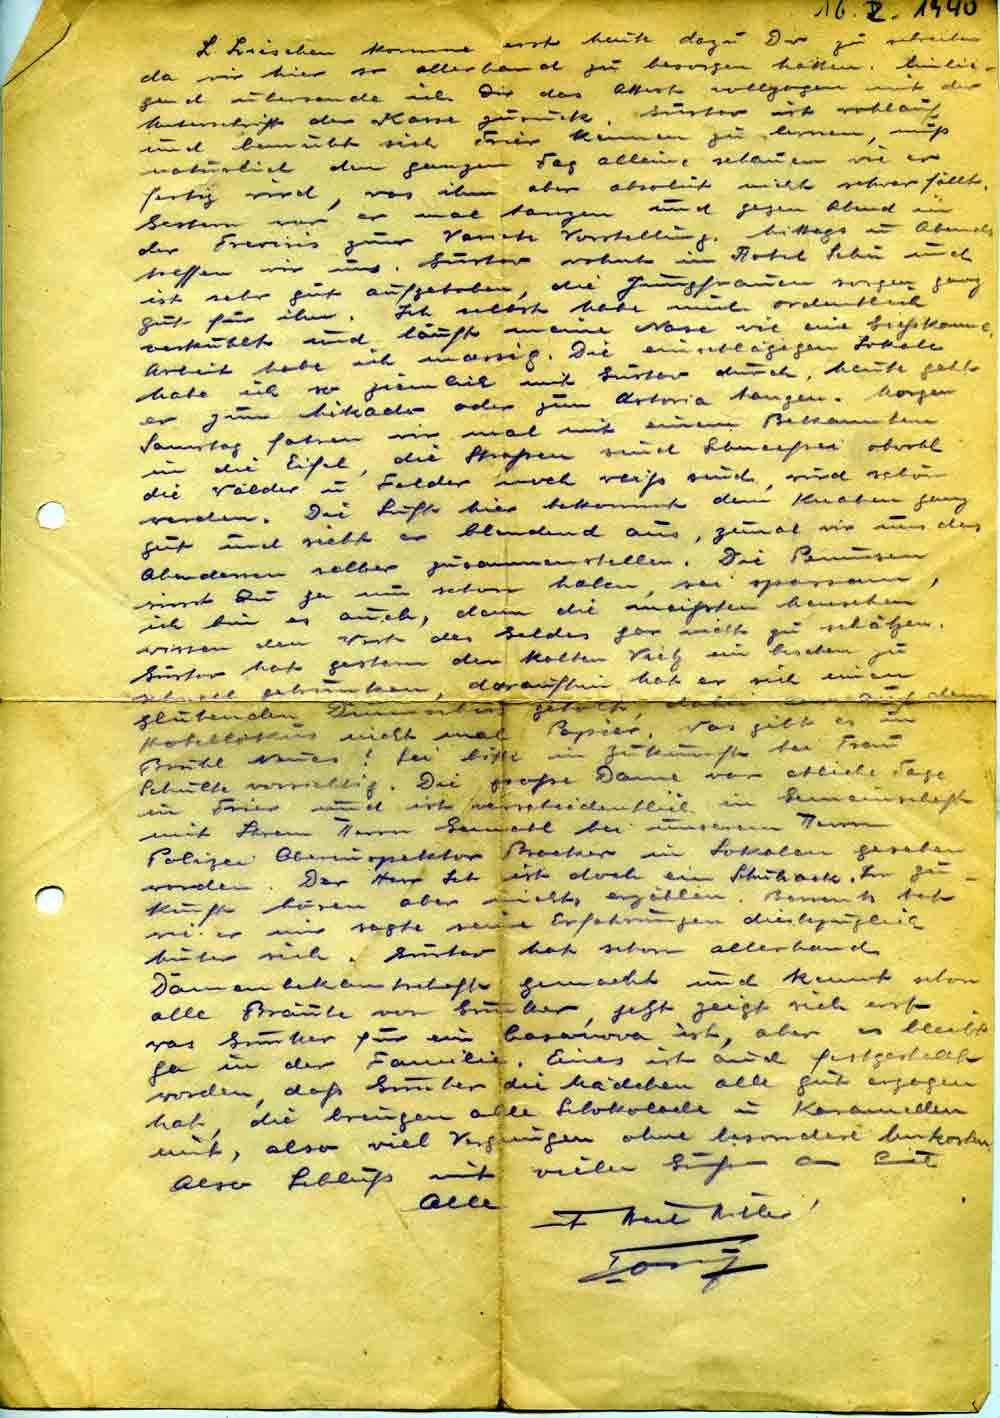 16. II. 1940
L. Lieschen komme erst heute dazu Dir zu schreiben
da wir hier so allerhand zu besorgen hatten. Einlie-
gend übersende ich Dir das Attest vollzogen mit der
Unterschrift der Kasse zurück. Gustav ist wohlauf
und bemüht sich Trier kennen zu lernen, muß
natürlich den ganzen Tag alleine schauen wie er
fertig wird, was ihm aber absolut nicht schwer fällt.
Gestern war er mal tanzen und gegen Abend in
der Treviris zur Variete Vorstellung. Mittags u Abends
treffen wir uns. Gustav wohnt im Hotel Schu und
ist sehr gut aufgehoben, die Jungfrauen sorgen ganz
gut für ihn. Ich selbst habe mich ordentlich
verkühlt und läuft meine Nase wie eine Gießkanne,
Arbeit habe ich maessig. Die einschlägigen Lokale
habe ich so ziemlich mit Gustav durch, heute geht
er zum Mikado oder zum Astoria tanzen. Morgen
Samstag fahren wir mal mit einem Bekannten
in die Eifel, die Straßen sind Schneefrei obwohl
die Wälder u Felder noch weiß sind, wird schön
werden. Die Luft hier bekommt dem Knaben ganz
gut und sieht er blendend aus, zumal wir uns das
Abendessen selber zusammenstellen. Die
wirst Du ja nun schon holen, sei sparsam,
ich bin es auch, denn die meisten Menschen
wissen den Wert des Geldes gar nicht zu schätzen.
Gustav hat gestern den kalten Viez ein bischen zu
schnell getrunken, daraufhin hat er sich einen
glühenden geholt, dabei auf dem
Hotellokus nicht mal Papier. Was gibt es in
Brühl Neues? Sei bitte in Zukunft bei Frau
Schulte vorsichtig. Die große Dame war etliche Tage
in Trier und ist verschiedentlich in Gemeinschaft
mit Ihrem Herrn Gemahl bei unserem Herrn
Polizei Oberinspektor Broeker in Lokalen gesehen
worden. Der Herr Sch ist doch ein Schuback. In Zu-
kunft hören aber nichts erzählen. hat
wie er mir sagte seine Erfahrungen diesbezüglich
hinter sich. Gustav hat schon allerhand
Damenbekanntschaft gemacht und kennt schon
alle Bräute von Günther, jetzt zeigt sich erst
was Günther für ein Casanova ist, aber es bleibt
ja in der Familie. Eines ist auch festgestellt
worden, daß Günther die Mädchen alle gut erzogen
hat, die bringen alle Schokolade u Karamellen
mit, also viel Vergnügen ohne besondere Unkosten
Also Schluß mit vielen Grüßen an Euch
Alle
Heil Hitler!